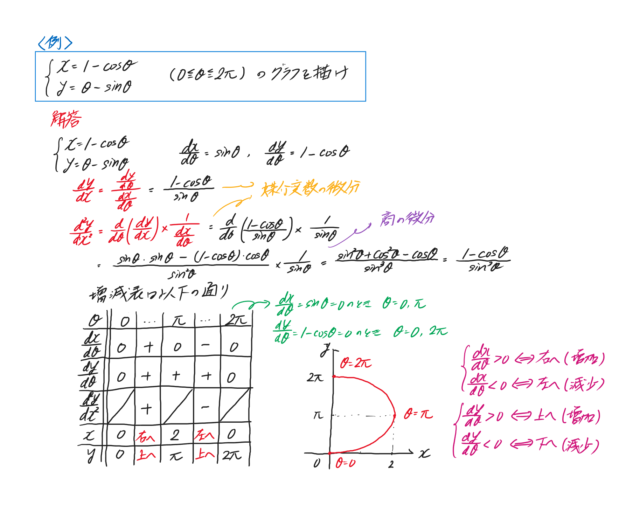 〈例〉
{ x = 1 - cosθ
y = θ - sinθ (0≦θ≦2π) のグラフを描け
解答
{ x = 1 - cosθ
y = θ - sinθ dx/dθ = sinθ , dy/dθ = 1 - cosθ
dy/dx = (dy/dθ)/(dx/dθ) = (1-cosθ)/sinθ → 媒介変数の微分
d²y/dx² = d/dθ(dy/dx) × 1/(dx/dθ) = d/dθ((1-cosθ)/sinθ) × 1/sinθ 商の微分
= (sinθ・sinθ - (1-cosθ)・cosθ)/sin²θ × 1/sinθ = (sin²θ+cos²θ-cosθ)/sin³θ = (1-cosθ)/sin³θ
増減表は以下の通り
dx/dθ = sinθ = 0のとき θ = 0, π
dy/dθ = 1-cosθ = 0のとき θ = 0, 2π
θ 0 … π … 2π
dx/dθ 0 + 0 - 0
dy/dθ 0 + + + 0
d²y/dx² + -
x 0 右へ 2 左へ 0
y 0 上へ π 上へ 2π
y
θ=2π
2π
π
θ=π
0
θ=0
2
x
{ dx/dθ > 0 ⇔ 右へ (増加)
dx/dθ < 0 ⇔ 左へ (減少)
{ dy/dθ > 0 ⇔ 上へ (増加)
dy/dθ < 0 ⇔ 下へ (減少)